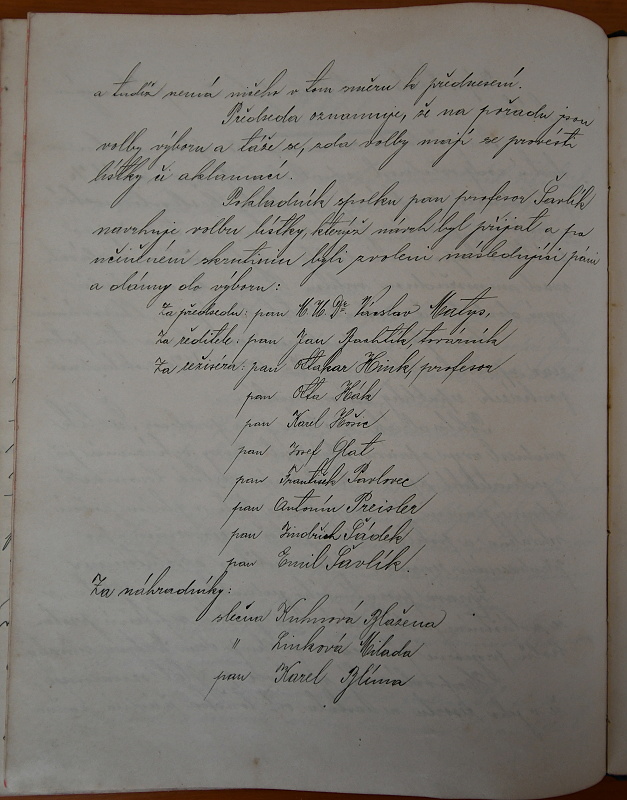 a tudíž nemá ničeho v tom směru k přednesení.
Předseda oznamuje, že na pořadu jsou
volby výboru a táže se, zda volby mají se provésti
lístky či aklamací.
Pokladník spolku pan profesor Šavlík
navrhuje volbu lístky, kterýž návrh byl přijat a po
učiněném skrutiniu byli zvoleni následující páni
a dámy do výboru:
Za předsedu: pan M.U.Dr. Václav Matys,
Za ředitele: pan Jan Bachtík, továrník
Za režiséra: pan Ottakar Hink, profesor
pan Otta Hák
pan Karel Hošic
pan Josef Glat
pan František Pavlovec
pan Antonín Preisler
pan Jindřich Šádek
pan Emil Šavlík.
Za náhradníky:
slečna Kuhnová Blažena
" Zinková Milada
pan Karel Blíma